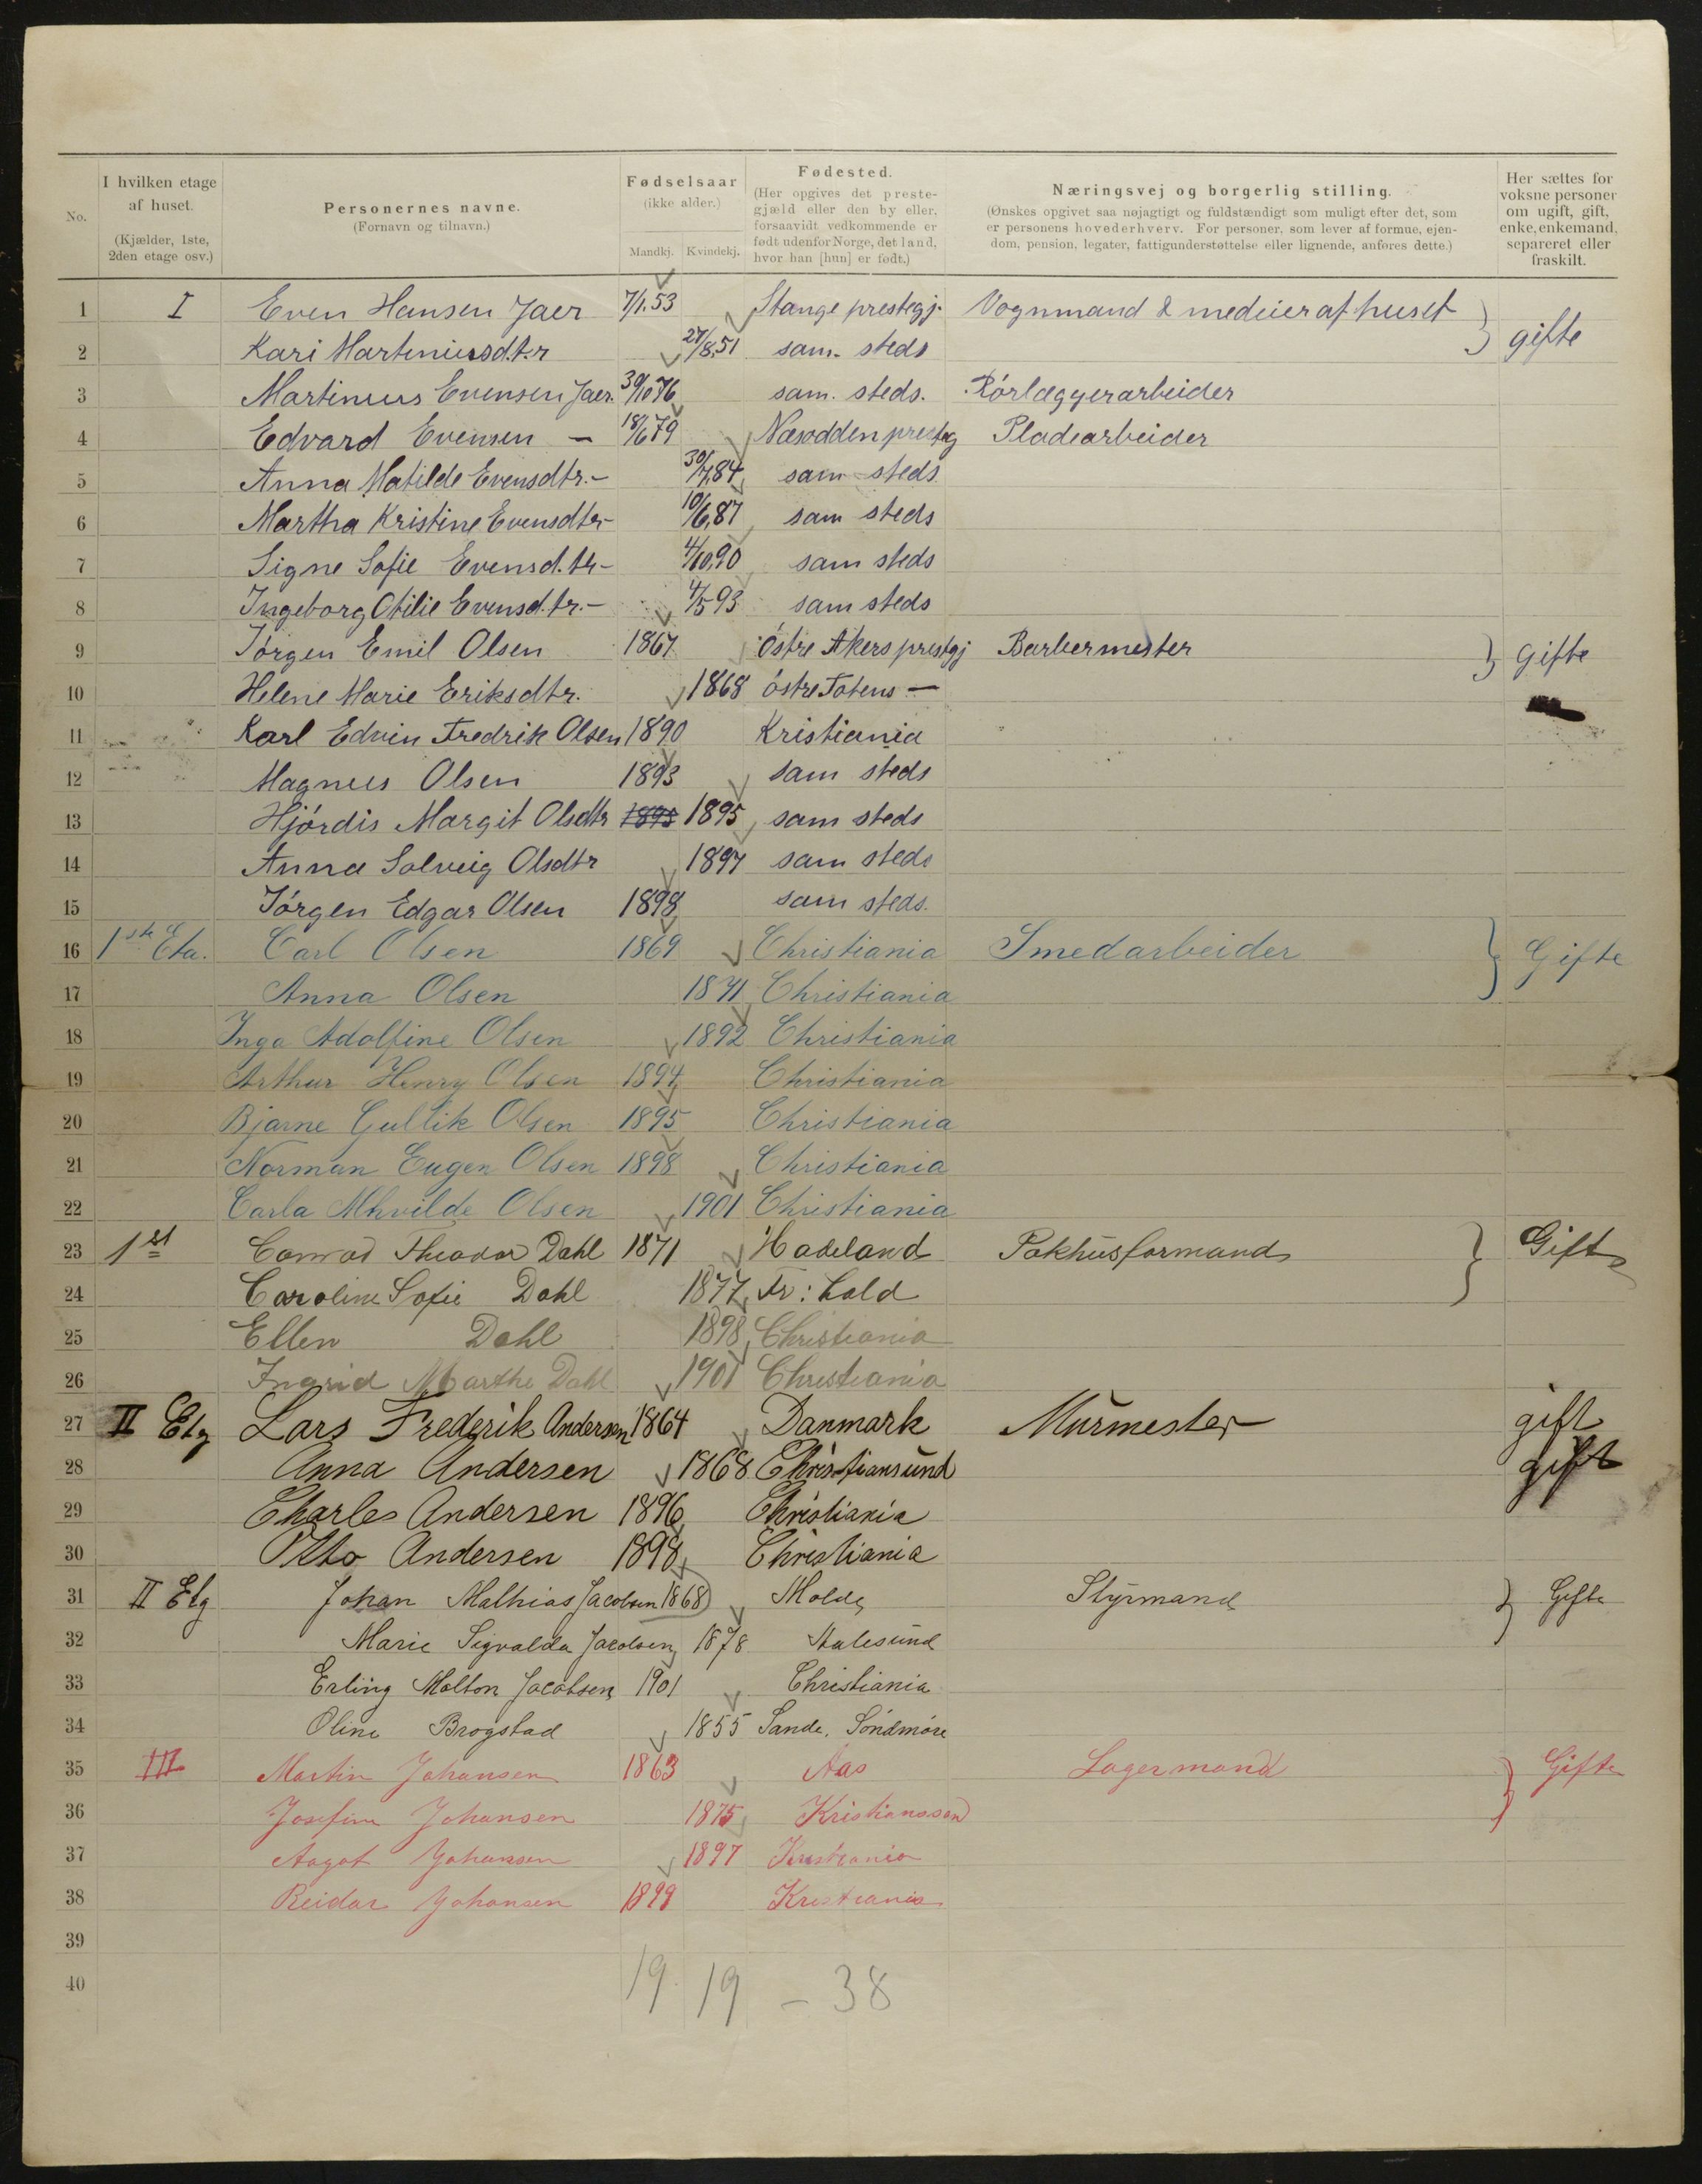 No.
I hvilken etage af huset.
(Kjælder, 1ste, 2den etage osv.)
Personernes navne.
(Fornavn og tilnavn.)
Fødselsaar
(ikke alder.)
Mandkj. Kvindekj.
Fødested.
(Her opgives det preste-
gjæld eller den by eller,
forsaavidt vedkommende er
født udenfor Norge, det land,
hvor han [hun] er født.)
Næringsvej og borgerlig stilling.
(Ønskes opgivet saa nøjagtigt og fuldstændigt som muligt efter det, som
er personens hovederhverv. For personer, som lever af formue, ejen-
dom, pension, legater, fattigunderstøttelse eller lignende, anføres dette.)
Her sættes for
voksne personer
om ugift, gift,
enke, enkemand,
separeret eller
fraskilt.
1 I Even Hansen Jaer 7/1.53 Stange prestegj. Vognmand & medeier af huset gifte
2 Kari Martinusd.t.r 27/8.51 sam. steds
3 Martinus Evensen Jaer. 30/10 76 sam. steds. Rórlæggerarbeider
4 Edvard Evensen — 18/6 79 Næsodden presteg Pladearbeider
5 Anna Matilde Evensdtr. - 30/7.84 sam steds
6 Martha Kristine Evensdtr - 10/6,87 sam steds
7 Signe Sofie Evensd.tr - 4/10,90 sam steds
8 Ingeborg Otilie Evensd.tr. - 4/5 93 sam steds
9 Jórgen Emil Olsen 1867 óstre Akers prestgj Barbermester gifte
10 Helene Marie Eriksdtr. 1868 óstre Totens —
11 Karl Edvin Fredrik Olsen 1890 Kristiania
12 Magnus Olsen 1893 sam steds
13 Hjórdis Margit Olsdtr 1895 1895 sam steds
14 Anna Solveig Olsdtr 1897 sam steds
15 Jórgen Edgar Olsen 1898 sam steds.
16 1ste Eta. Carl Olsen 1869 Christiania Smedarbeider Gifte
17 Anna Olsen 1871 Christiania
18 Inga Adolfine Olsen 1892 Christiania
19 Arthur Henry Olsen 1894 Christiania
20 Bjarne Gullik Olsen 1895 Christiania
21 Norman Eugen Olsen 1898 Christiania
22 Carla Olsen 1901 Christiania
23 1st Conrad Theodor Dahl 1871 Hadeland Pakhusformand Gift
24 Caroline Sofie Dahl 1877 Fr: hald
25 Ellen Dahl 1898 Christiania
26 Ingrid Marthe Dahl 1901 Christiania
27 II Etg Lars Frederik Andersen 1864 Danmark Murmester gift
28 Anna Andersen 1868 Christiansund gift
29 Charles Andersen 1896 Christiania
30 Otto Andersen 1898 Christiania
31 II Etg Johan Mathias Jacobsen 1868 Molde Styrmand Gifte
32 Marie Sigvalda Jacobsen 1878 Aalesund
33 Erling Jacobsen 1901 Christiania
34 Oline Brogstad 1855 Sande, Sóndmóre
35 III Martin Johansen 1863 Aas Lagermand Gifte
36 Josefine Johansen 1875 Kristianssand
37 Aagot Johansen 1897 Kristiania
38 Reidar Johansen 1899 Kristiania
39
40
19 19 - 38